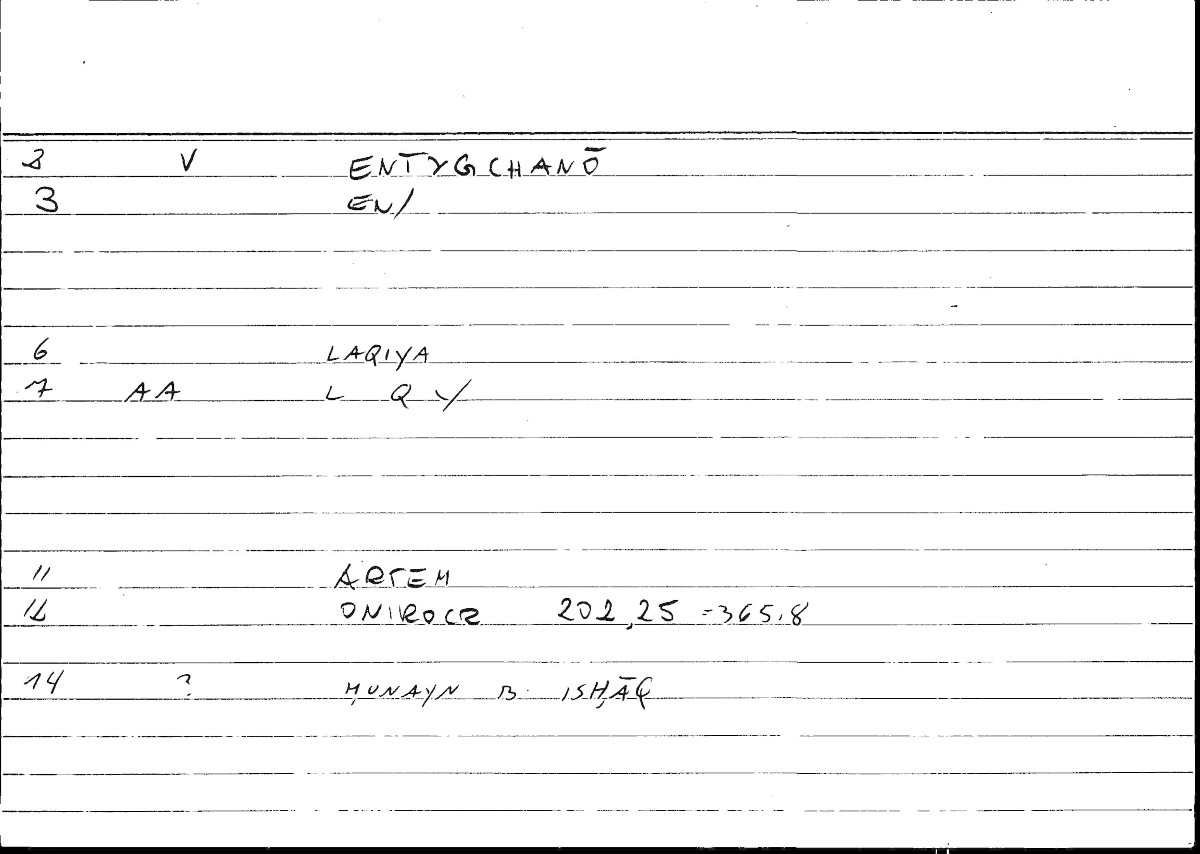 2 V ENTYGCHANŌ
3 EN/
6 LAQIYA
7 AA L Q Y/
11 ARTEM
12 ONIROCR 202,25 =365.8
14 ? ḤUNAYN B. ISḤĀQ